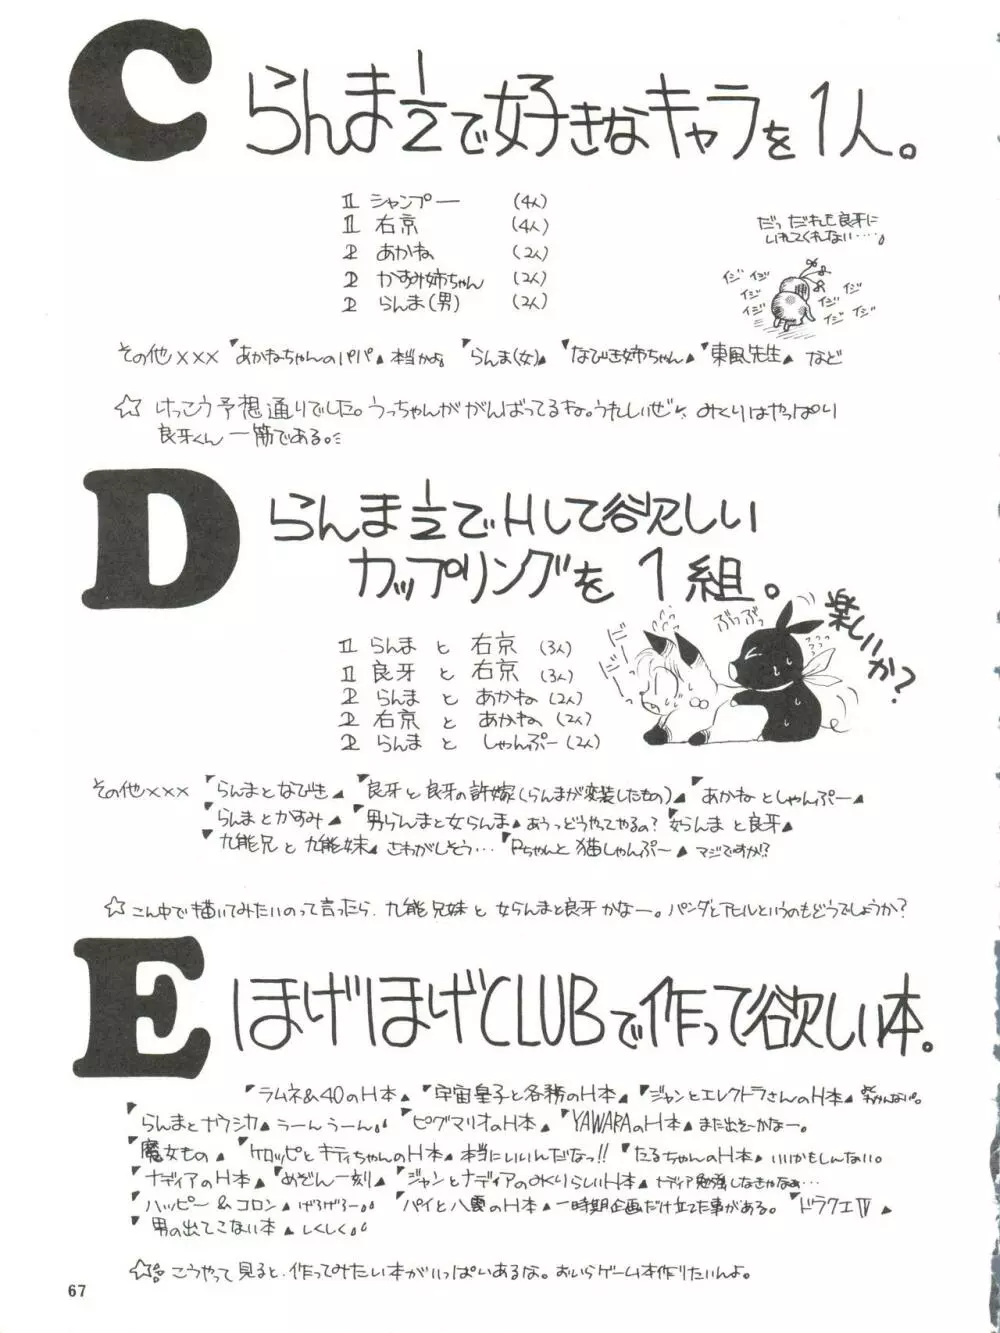 C
らんま1/2で好きなキャラを1人。
1 シャンプー (4人)
1 右京 (4人)
2 あかね (2人)
2 かすみ姉ちゃん (2人)
2 らんま(男) (2人)
だっ だれも良牙に
いれてくれない・・・・。
イジ イジ イジ イジ イジ イジ イジ イジ
その他××× 「あかねちゃんのパパ」本当かよ 「らんま(女)」 「なびき姉ちゃん」 「東風先生」 など
☆ けっこう予想通りでした。うっちゃんががんばってるね。うれしいぜ みくりはやっぱり
良牙くん一筋である。
D
らんま1/2でHして欲しい
カップリングを1組。
1 らんま と 右京 (3人)
1 良牙 と 右京 (3人)
2 らんま と あかね (2人)
2 右京 と あかね (2人)
2 らんま と しゃんぷー (2人)
ぶっぶっ
楽しいか?
その他××× 「らんまとなびき」 「良牙と良牙の許嫁(らんまが変装したもの)」 「あかねとしゃんぷー」
「らんまとかすみ」 「男らんまと女らんま」あうっどうやってやるの? 女らんまと良牙」
「九能兄と九能妹」さわがしそう・・・ 「Pちゃんと猫しゃんぷー」マジですか!?
☆ こん中で描いてみたいのって言ったら、九能兄妹と女らんまと良牙かなー。パンダとアヒルというのもどうでしょうか?
E
ほげほげCLUBで作って欲しい本。
「ラムネ&40のH本」 「宇宙皇子と各務のH本」 「ジャンとエレクトラさんのH本」
「らんまとナウシカ」うーんうーん。 「ピグマリオのH本」 「YAWARAのH本」また出そーかなー。
「魔女もの」 「ケロッピとキティちゃんのH本」本当にいいんだなっ!! 「たるちゃんのH本」いいかもしんない。
「ナディアのH本」 「めぞん一刻」 「ジャンとナディアのみくりらしいH本」ナディア勉強しなきゃなぁ・・・
「ハッピー&コロン」げろげろー。 「パイと八雲のH本」一時期企画だけ立てた事がある。「ドラクエⅣ」
「男の出てこない本」しくしく。
☆ こうやって見ると、作ってみたい本がいっぱいあるな。おいらゲーム本作りたいんよ。
67